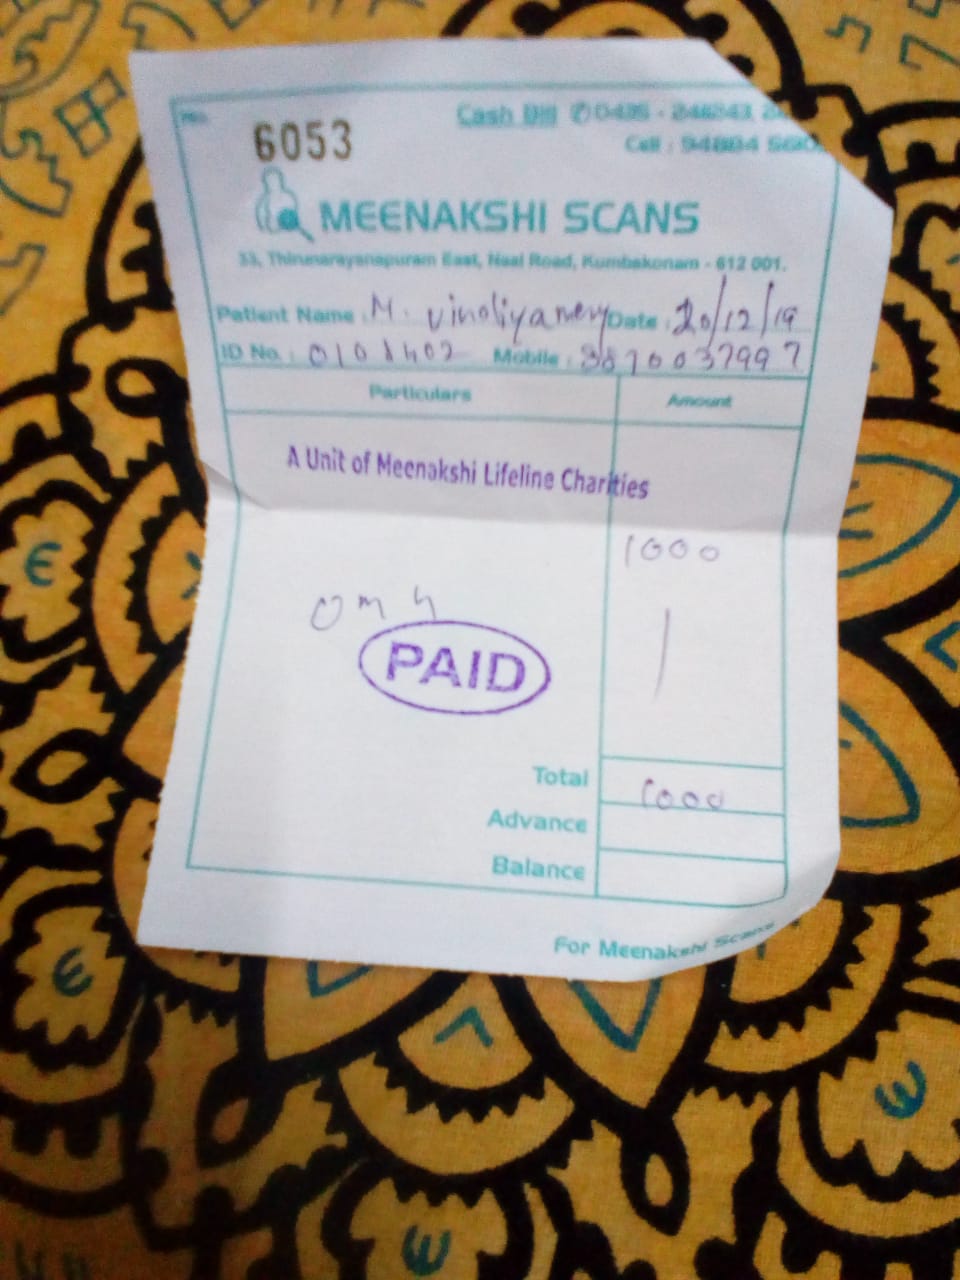 6053
Cash Bill
Cell : 94884
MEENAKSHI SCANS
33, Thirunarayanapuram East, Naal Road, Kumbakonam - 612 001.
Patient Name : M. vinoliyamery Date : 20/12/19
ID No. : Mobile :
Particulars Amount
A Unit of Meenakshi Lifeline Charities
1000
PAID
Total 1000
Advance
Balance
For Meenakshi Scans